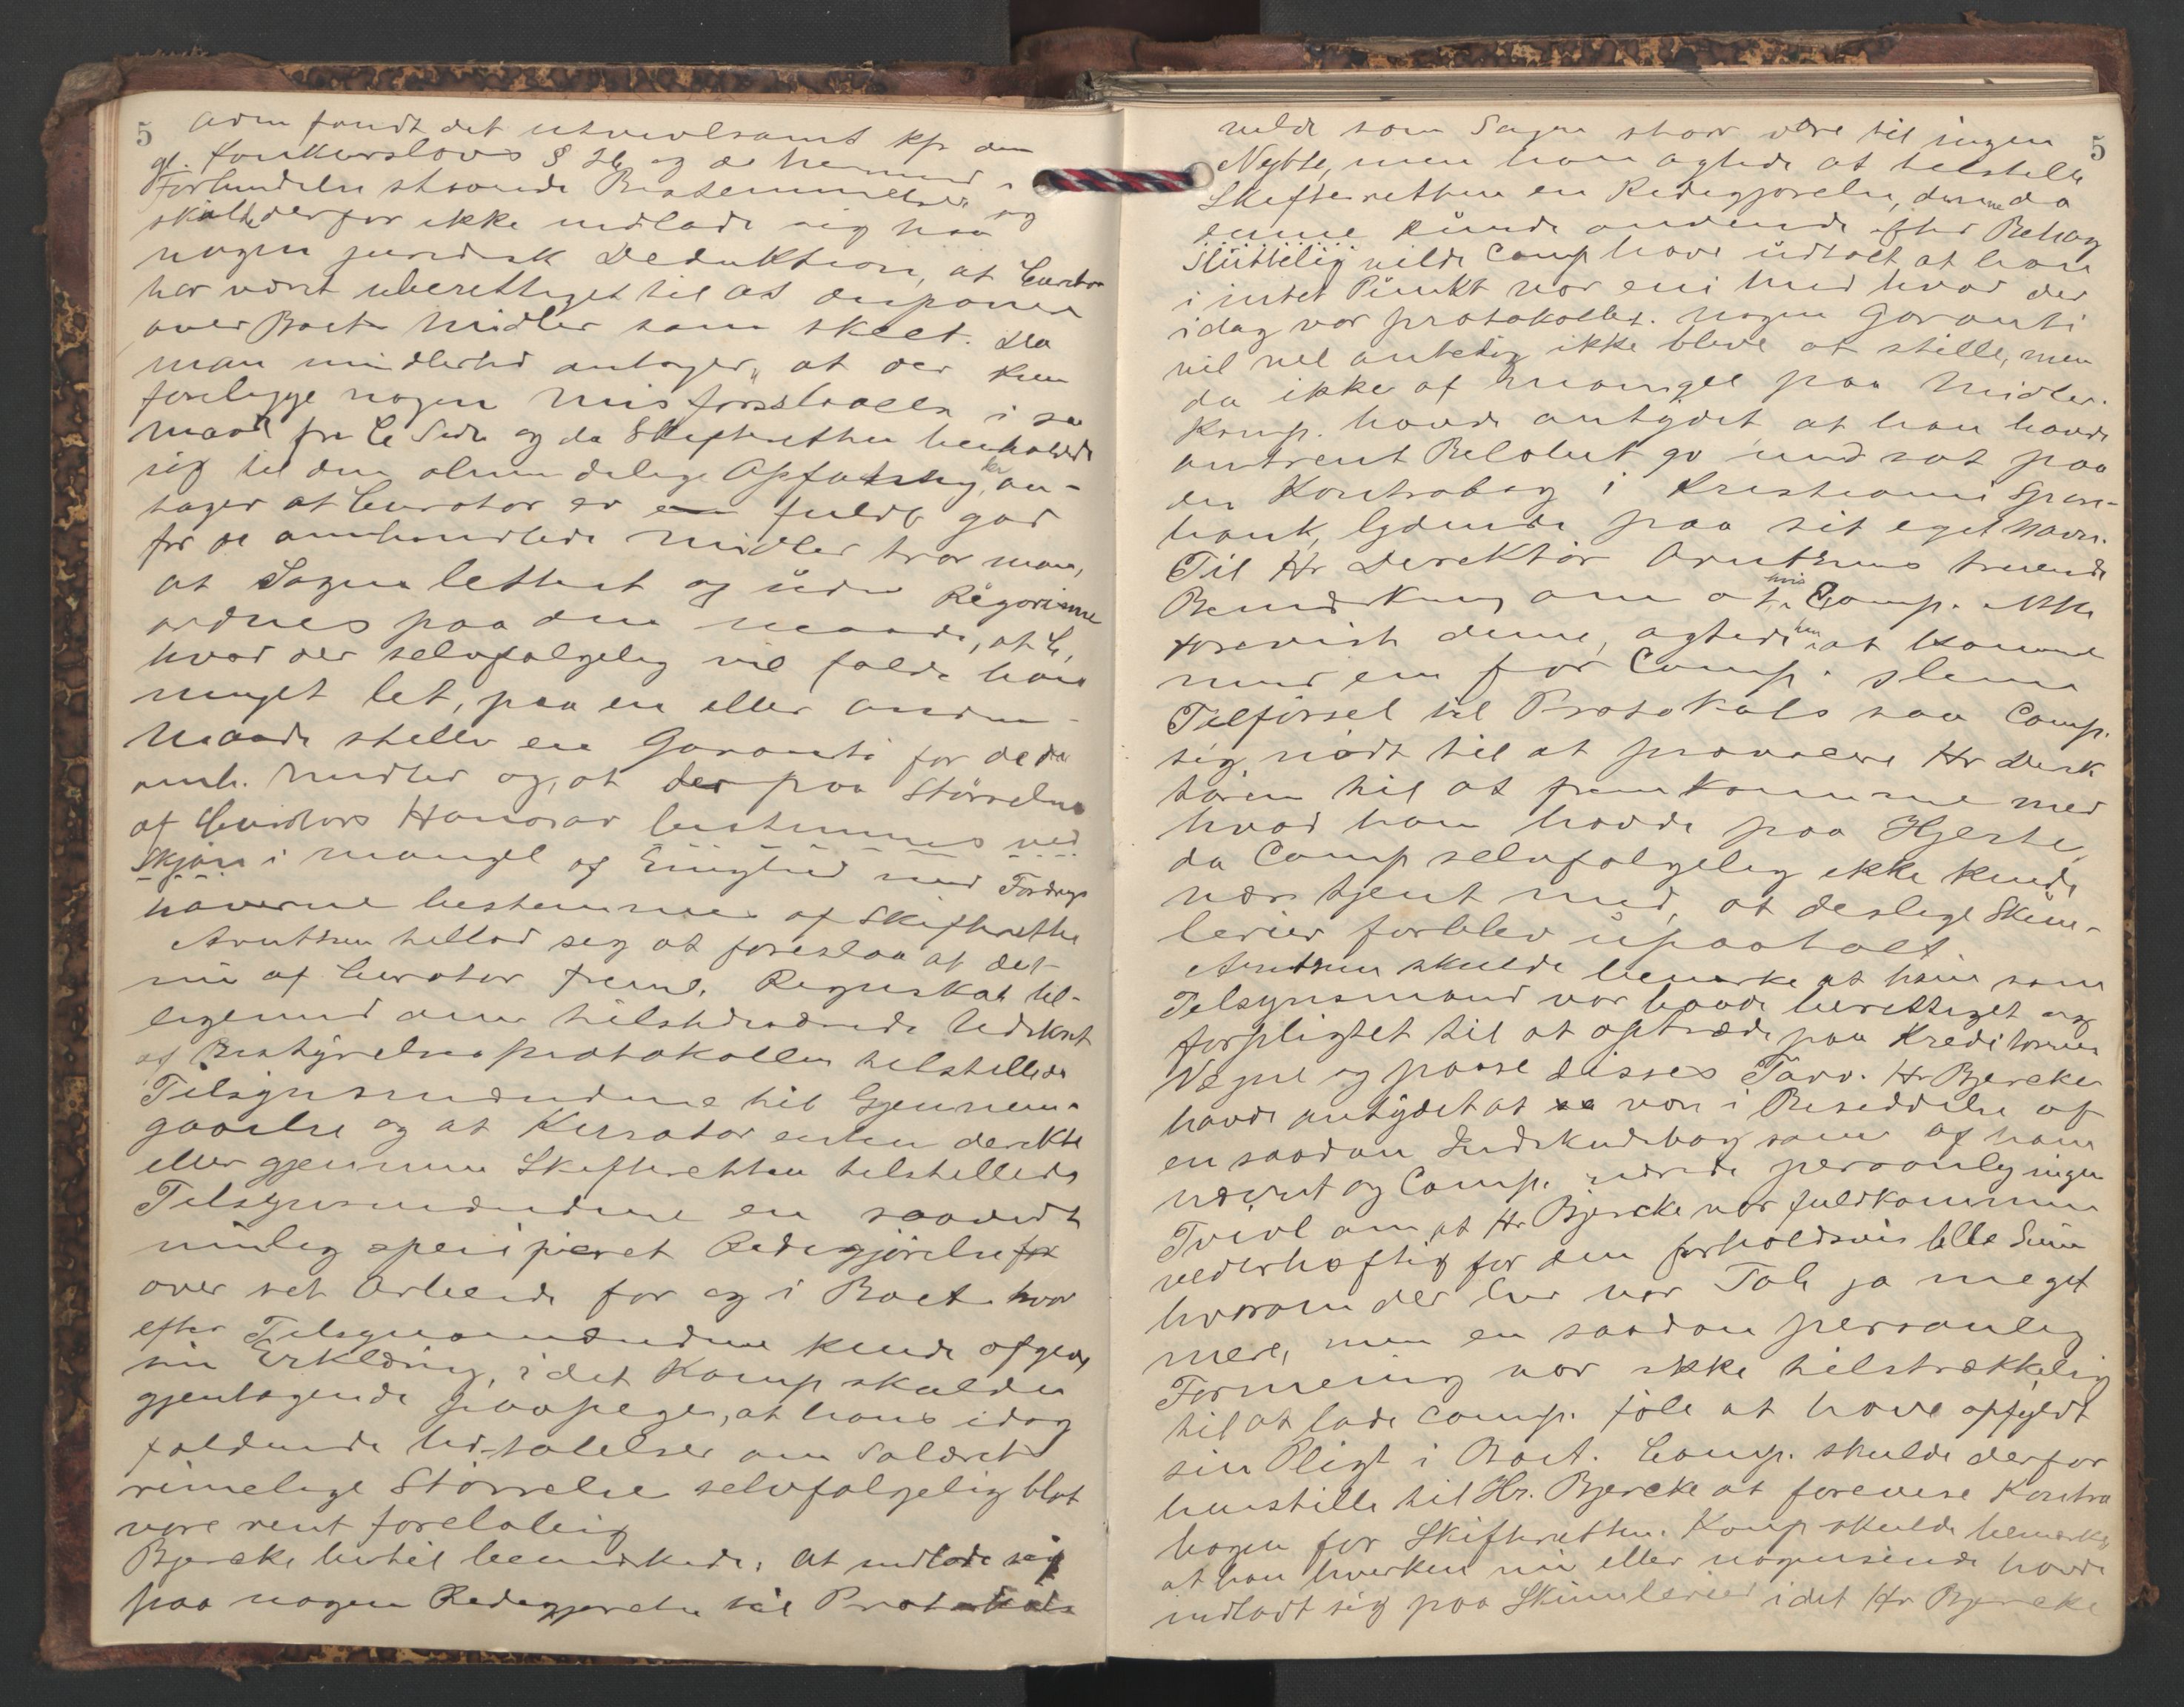 5
Adm fandt det utvivlsomt kfr den
gl. Konkurslovs § 26 og de hermed i
Forbindelse staaende Bestemmelser og
skulde derfor ikke indlade sig paa
nogen juridisk Deduktion, at Curator
har været uberettiget til at disponere
over Boets Midler som skeet. Da
man imidlertid antager, at der kun
foreligge nogen Misforstaaelse i saa
Maade fra C's Side og da Skifteretten henholder
sig til den almindelige Opfatning, an-
tager at Curator er fuldt god
for de omhandlede Midler tror man,
at Sagen lettest og uden Rigorisme
ordnes paa den Maade, at C,
hvad der selvfølgelig vil falde ham
meget let, paa en eller anden
Maade stiller en Garanti for de
omh. Midler og, at der paa Størrelsen
af Curators Honorar bestemmes ved
Skjøn i Mangel af Enighed med Fordrings
haverne bestemmes af Skifteretten
Arntsen tillod sig at foreslaa at det
nu af Curator freml. Regnskab til-
ligemed en tilstedeværende Udskrift
af Bestyrelsesprotokollen tilstilledes
Tilsynsmændene til Gjennem-
gaaelse og at Kurator enten direkte
eller gjennem Skifteretten tilstillede
Tilsynsmændene en saavidt
mulig specificeret Redegjørelse
over sit Arbeide for og i Boet hvor
efter Tilsynsmændene kunde afgive
sin Erklæring, idet Komp skulde
gjentagende paapege, at hans idag
faldende Udtalelser om Salærets
rimelige Størrelse selvfølgelig blot
vare rent foreløbig
Bjercke hertil bemærkede: At indlade sig
paa nogen Redegjørelse til Protokols
5
vilde som Sagen staar være til ingen
Nytte, men han agtede at tilstille
Skifteretten en Redegjørelse, denne da
kunde anvende efter Behag
Sluttelig vilde Comp have udtalt at han
i intet Punkt var eni med hvad der
idag var protokollet. Nogen Garanti
vil vel antagelig ikke blive at stille, men
da ikke af Mangel paa Midler.
Komp. havde antydet, at han havde
omtrent Beløbet go indsat paa
en Kontrabog i Kristiania Spare-
bank, lydende paa sit eget Navn.
Til Hr Direktør Arntsens truende
Bemærkning om at hvis Comp. ikke
foreviste denne, agtede han at komme
med en for Comp. slem
Tilførsel til Protokols saa Comp.
sig nødt til at provocere Hr Direk
tøren til at fremkomme med
hvad han havde paa Hjerte,
da Comp selvfølgelig ikke kunde
være tjent med, at deslige Skum-
lerier forblev upaatalt.
Arntsen skulde bemærke at han som
Tilsynsmand var baade berettiget og
forpligtet til at optræde paa Kreditorernes
Vegne og paase disses Tarv. Hr Bjercke
havde antydet at være i Besiddelse af
en saadan Indskudsbog som af ham
nævnt og Comp. nærede personlig ingen
Tvivl om, at Hr Bjercke var fuldkommen
vederhæftig for den forholdsvis lille Sum
hvorom der her var Tale ja meget
mere, men en saadan personlig
Formening var ikke tilstrækkelig
til at lade Comp. føle at have opfyldt
sin Pligt i Boet. Comp. skulde derfor
henstille til Hr. Bjercke at forevise Kontra
bogen for Skifteretten. Komp skulde bemærke,
at han hverken nu eller nogensinde havde
indladt sig paa Skumlerier idet Hr Bjercke